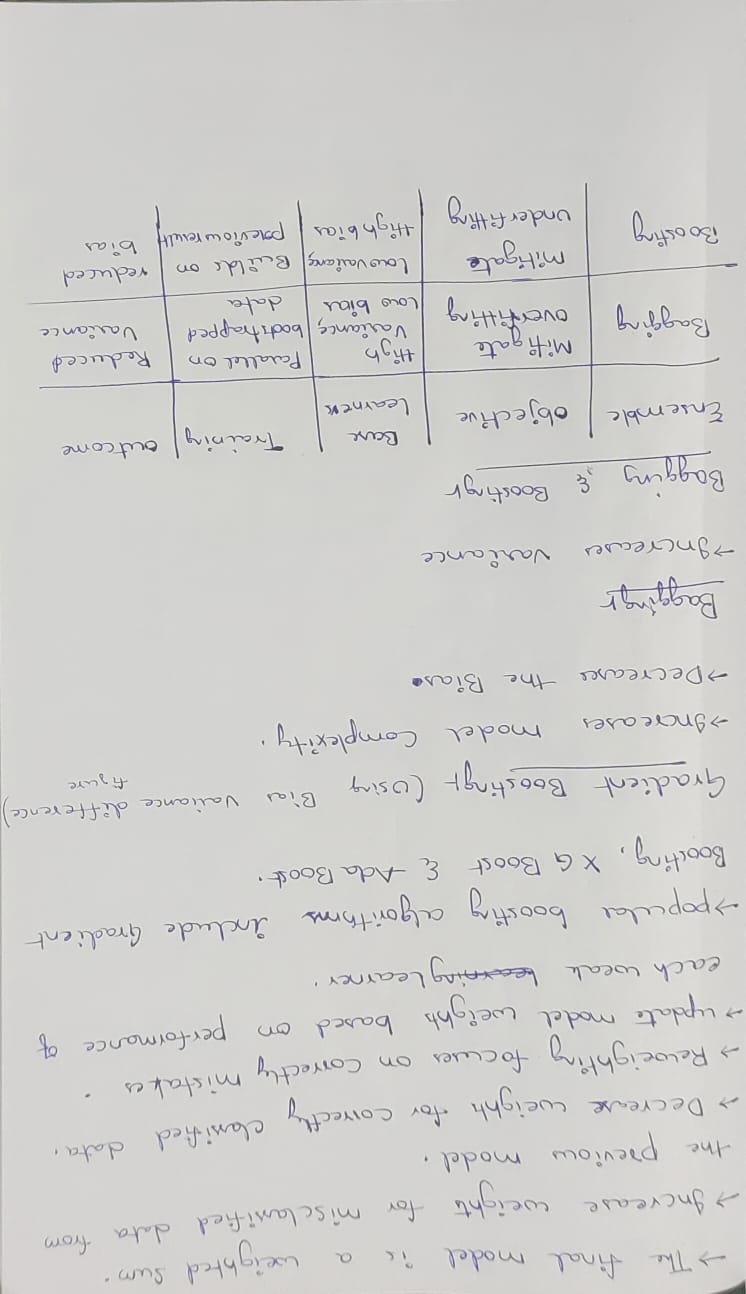 → The final model is a weighted sum.
→ Increase weights for misclassified data from
the previous model.
→ Decrease weights for correctly classified data.
→ Reweighting focuses on correctly mistakes.
→ update model weights based on performance of
each weak learning Learner.
→ popular boosting algorithms include Gradient
Boosting, XG Boost & Ada Boost.
Gradient Boosting:- (Using Bias Variance difference)
figure
→ Increases model Complexity.
→ Decreases the Bias.
Bagging:-
→ Increases variance
Bagging & Boosting:-
Ensemble | objective | Base learners | Training | outcome
Bagging | Mitigate overfitting | High Variance, low bias | Parallel on bootstrapped data | Reduced Variance
Boosting | mitigate underfitting | low variance, High bias | Builds on previous result | reduced bias